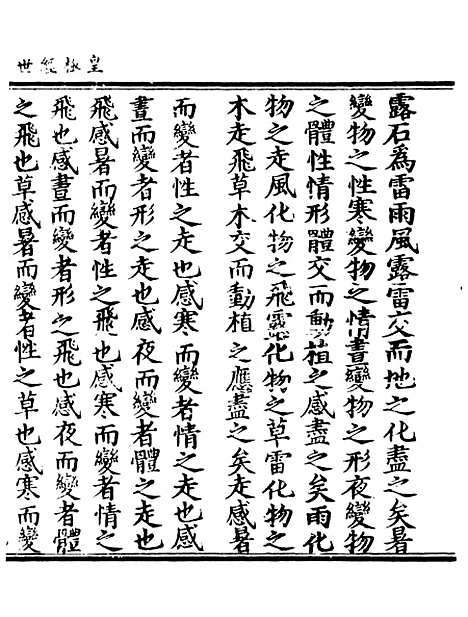 皇極經世
露石為雷雨風露雷交而地之化盡之矣暑
變物之性寒變物之情晝變物之形夜變物
之體性情形體交而動植之感盡之矣雨化
物之走風化物之飛露化物之草雷化物之
木走飛草木交而動植之應盡之矣走感暑
而變者性之走也感寒而變者情之走也感
晝而變者形之走也感夜而變者體之走也
飛感暑而變者性之飛也感寒而變者情之
飛也感晝而變者形之飛也感夜而變者體
之飛也草感暑而變者性之草也感寒而變